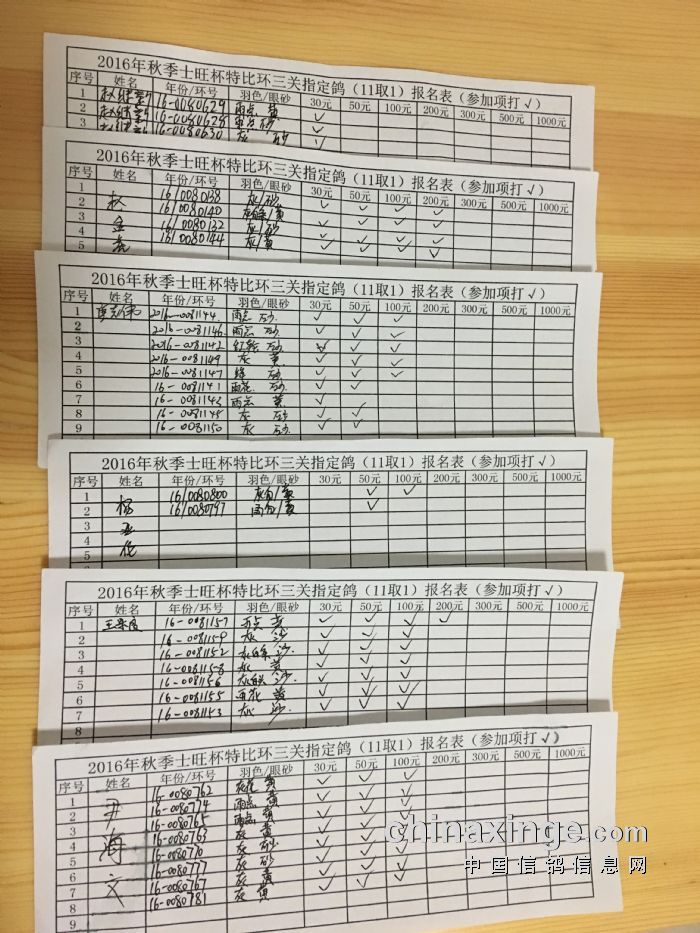 2016年秋季士旺杯特比环三关指定鸽（11取1）报名表（参加项打√）
序号 姓名 年份/环号 羽色/眼砂 30元 50元 100元 200元 300元 500元 1000元
1 16-0080629 雨点 黄 √
2 16-0080628 雨点 砂 √
3 16-0080630 灰 砂 √
2016年秋季士旺杯特比环三关指定鸽（11取1）报名表（参加项打√）
序号 姓名 年份/环号 羽色/眼砂 30元 50元 100元 200元 300元 500元 1000元
1 16/0080138 灰/砂 √ √ √ √
2 赵 16/0080140 /黄 √ √ √ √
3 金 16/0080132 灰/砂 √ √ √ √
4 16/0080144 灰/黄 √ √ √ √
5
2016年秋季士旺杯特比环三关指定鸽（11取1）报名表（参加项打√）
序号 姓名 年份/环号 羽色/眼砂 30元 50元 100元 200元 300元 500元 1000元
1 2016-0081144 雨点 砂 √ √ √
2 2016-0081146 雨点 砂 √ √ √
3 2016-0081142 红绛 砂 √ √ √
4 2016-0081149 灰 黄 √ √ √
5 2016-0081147 绛 砂 √ √ √
6 16-0081141 雨花 砂 √ √
7 16-0081143 雨点 黄 √
8 16-0081145 灰 砂 √ √
9 16-0081150 灰 砂 √ √
2016年秋季士旺杯特比环三关指定鸽（11取1）报名表（参加项打√）
序号 姓名 年份/环号 羽色/眼砂 30元 50元 100元 200元 300元 500元 1000元
1 16/0080800 /黄 √ √
2 杨 16/0080797 雨白/黄 √
3 亚
4
5 伦
2016年秋季士旺杯特比环三关指定鸽（11取1）报名表（参加项打√）
序号 姓名 年份/环号 羽色/眼砂 30元 50元 100元 200元 300元 500元 1000元
1 16-0081157 雨点 黄 √ √ √ √
2 16-0081159 灰 沙 √ √ √
3 16-0081152 沙 √ √ √
4 16-0081158 灰 黄 √ √ √
5 16-0081156 沙 √ √ √
6 16-0081155 雨花 黄 √ √ √
7 16-0081153 灰 沙 √ √ √
2016年秋季士旺杯特比环三关指定鸽（11取1）报名表（参加项打√）
序号 姓名 年份/环号 羽色/眼砂 30元 50元 100元 200元 300元 500元 1000元
1 16-0080762 灰花 黄 √ √ √
2 尹 16-0080774 雨点 黄 √ √ √
3 16-0080765 雨点 黄 √ √ √
4 海 16-0080763 灰 黄 √ √ √
5 16-0080770 灰 砂 √ √ √
6 16-0080777 灰 砂 √ √ √
7 文 16-0080767 灰 黄 √ √ √
8 16-0080781 灰 黄
9
chinaxinge.com
中国信鸽信息网